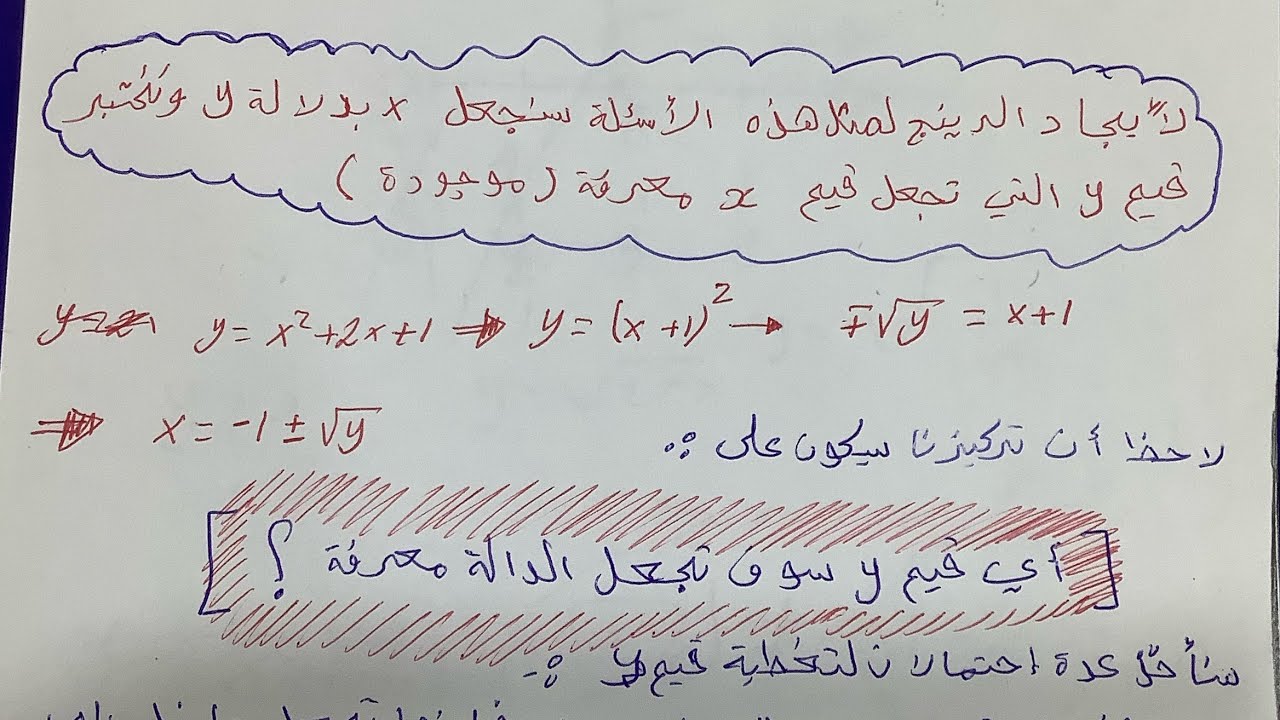 لأيجاد الرينج لمثل هذه الأسئلة سنجعل x بدلالة y ونختبر
قيم y التي تجعل قيم x معرفة (موجودة)
y = x²+2x+1 ⇒ y = (x+1)² → ∓√y = x+1
⇒ x = -1 ± √y
لاحظ أن تركيزنا سيكون على :.
[أي قيم y سوف تجعل الدالة معرفة ؟]
سنأخذ عدة احتمالات لتغطية قيم y :-